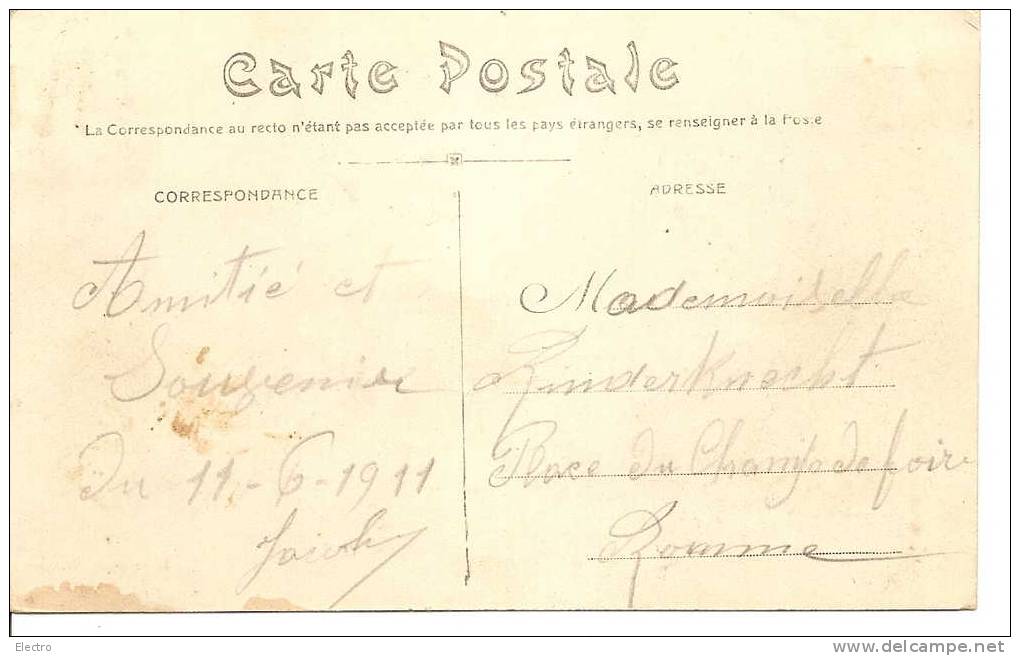 Carte Postale
La Correspondance au recto n'étant pas acceptée par tous les pays étrangers, se renseigner à la Poste
CORRESPONDANCE
ADRESSE
Amitié et
Souvenir
Du 11-6-1911
Mademoiselle
Rinderknecht
Place du Champ de foire
Roanne
Electro
www.delcampe.net